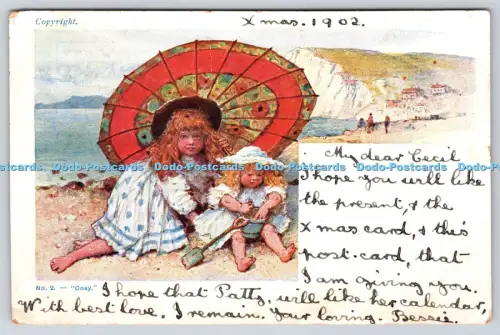 Copyright.
Xmas. 1902.
My dear Cecil
I hope you will like
the present, & the
Xmas card, & this
post-card, that
I am giving you.
No. 2. — "Cosy."
I hope that Patty, will like her calendar,
With best love. I remain. Your loving. Bessie.
Dodo-Postcards
Dodo-Postcards.com
Dodo-Postcards
Dodo-Postcards.com
Dodo-Postcards